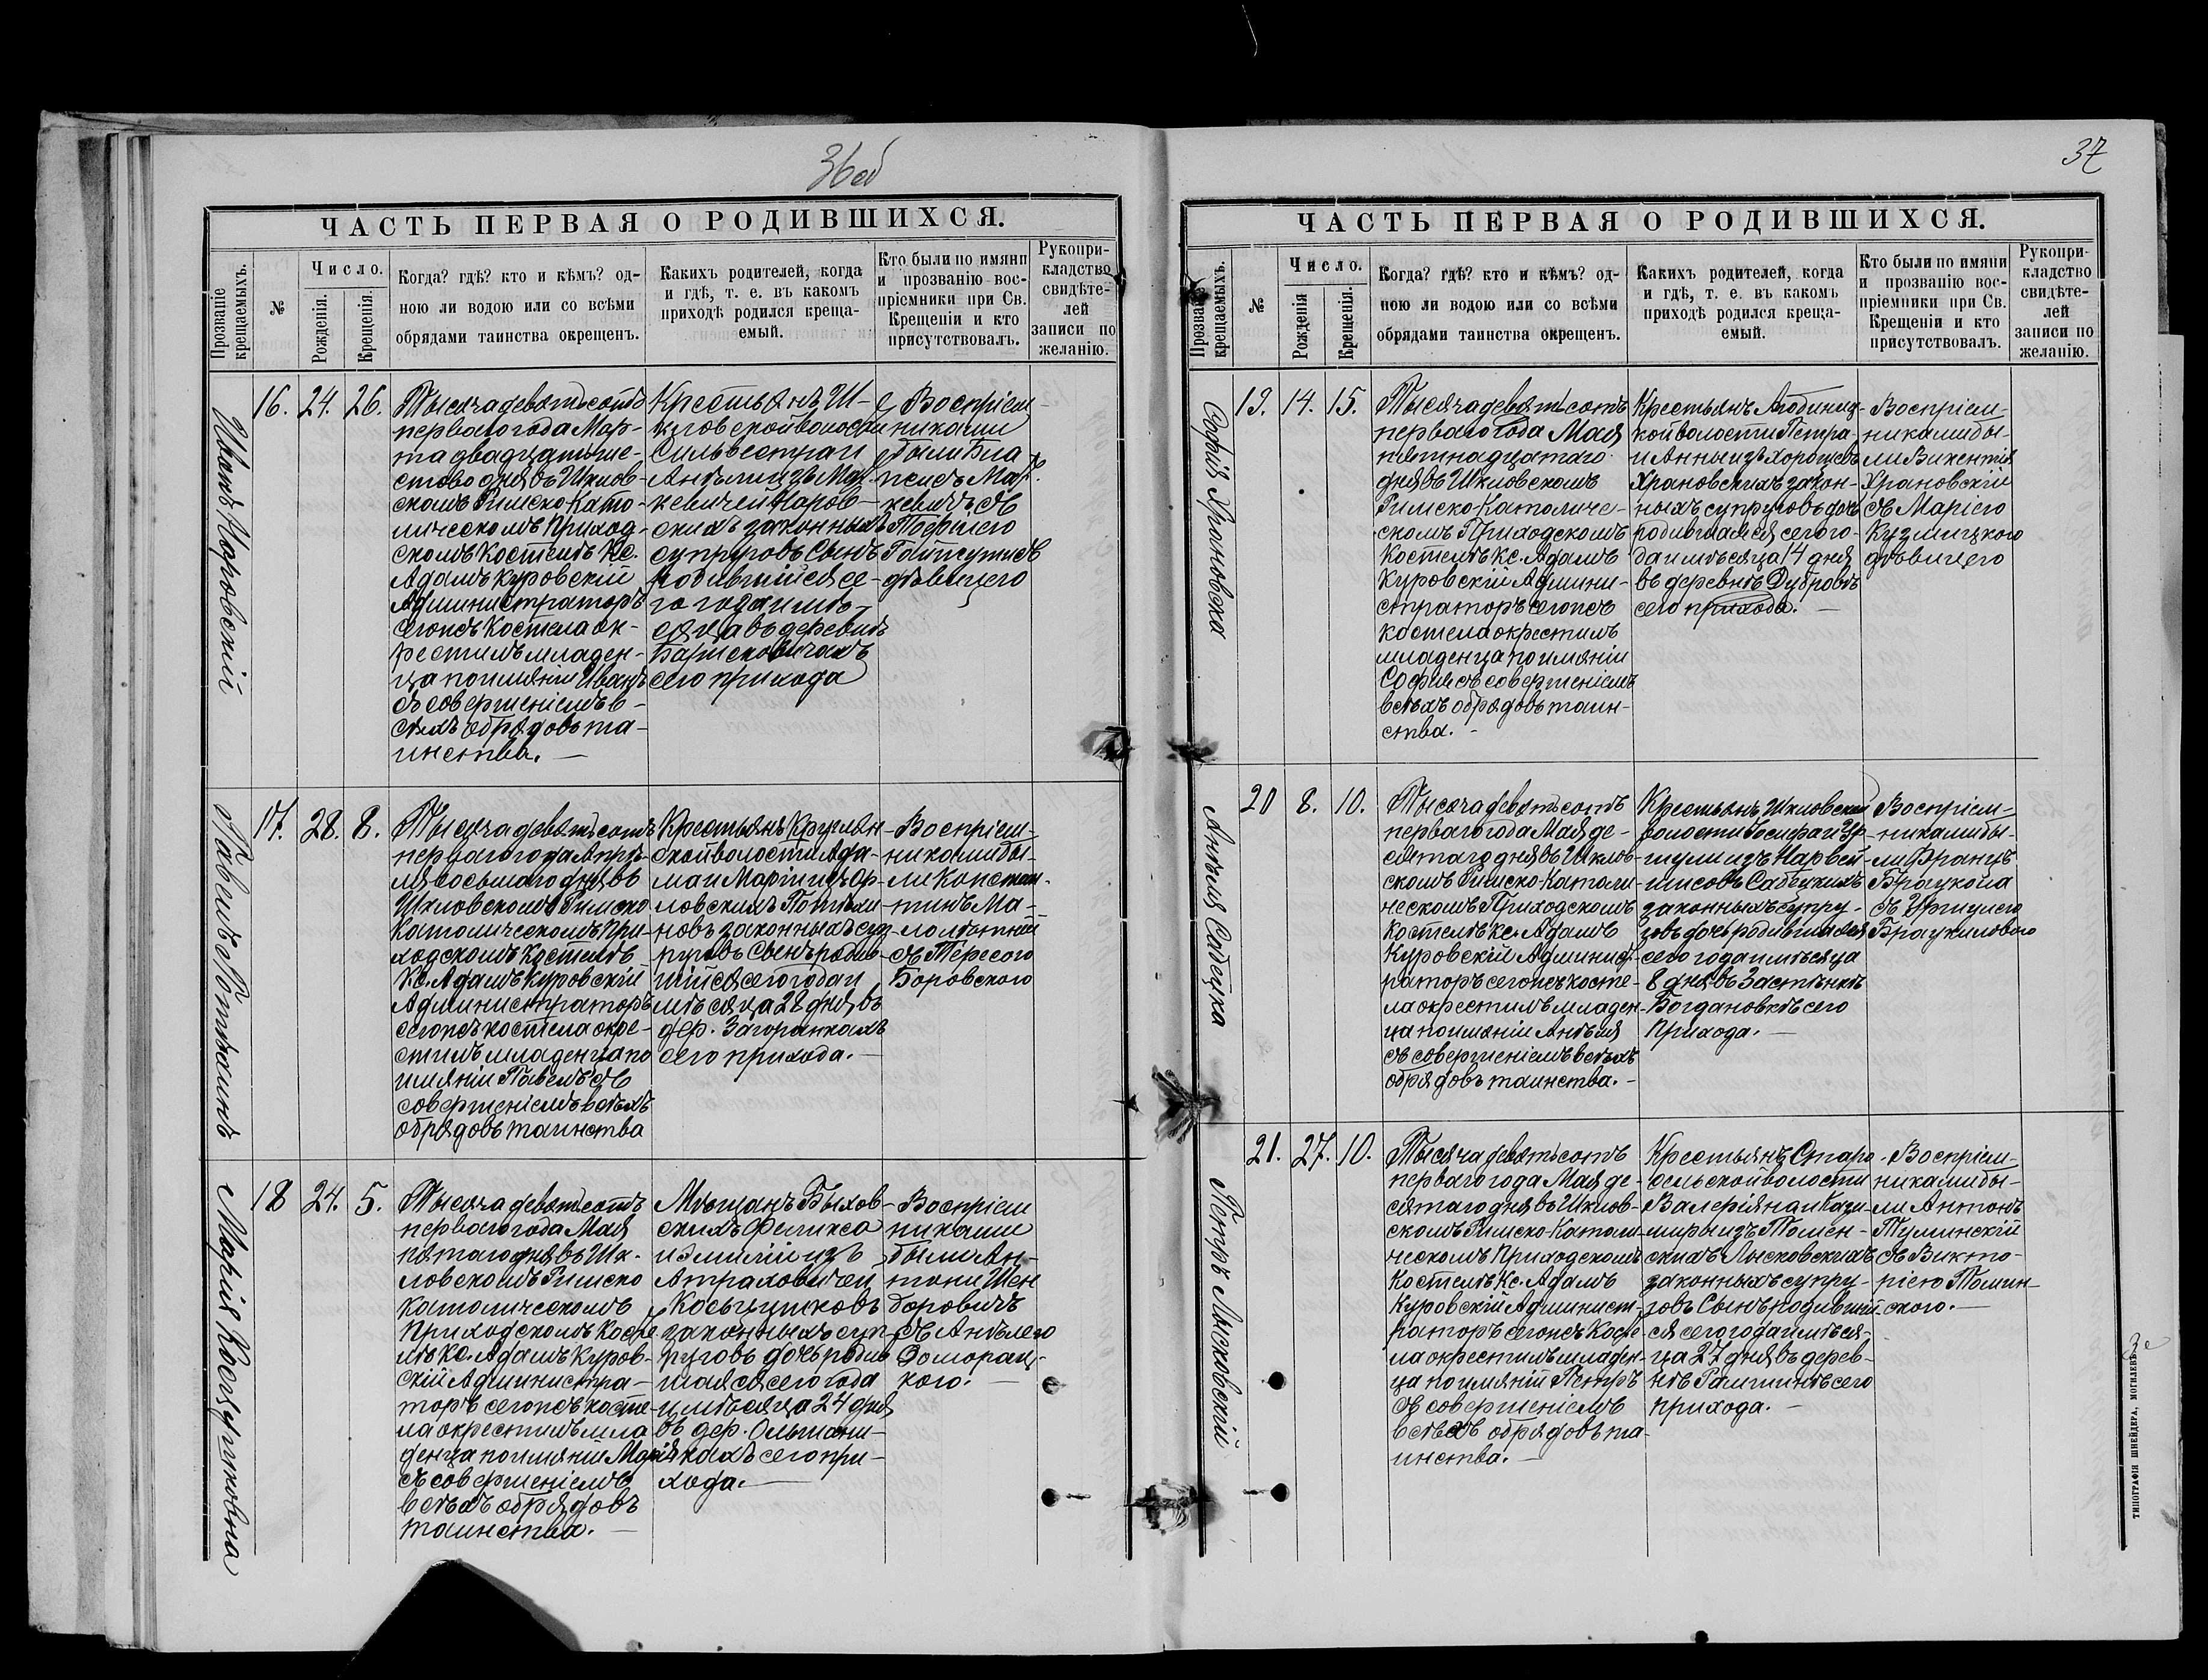 36об
ЧАСТЬ ПЕРВАЯ О РОДИВШИХСЯ.
Прозваніе крещаемыхъ.
№
Число.
Рожденія.
Крещенія.
Когда? гдѣ? кто и кѣмъ? од-
ною ли водою или со всѣми
обрядами таинства окрещенъ.
Какихъ родителей, когда
и гдѣ, т. е. въ какомъ
приходѣ родился креща-
емый.
Кто были по имяни
и прозванію вос-
пріемники при Св.
Крещеніи и кто
присутствовалъ.
Рукопри-
кладство
свидѣте-
лей
записи по
желанію.
Иванъ Наровскій
16.
24.
26.
Тысяча девятьсотъ
перваго года Мар-
та двадцать ше-
стаго дня въ Шклов-
скомъ Римско Като-
лическомъ Приход-
скомъ Костелѣ Кс.
Адамъ Куровскій
Администраторъ
сегожъ Костела ок-
рестилъ младен-
ца по имяніи Иванъ
съ совершеніемъ в-
сѣхъ обрядовъ та-
инства.
Крестьянъ Ш-
кловской волости
Сильвестра и
Анѣли изъ Мац-
кевичей Наров-
скихъ законныхъ
супруговъ Сынъ
родившійся се-
го года и мѣ-
сяца въ деревнѣ
сего прихода
Воспріем
никами
были
съ
Тофілею
дѣвицею
Павелъ Потѣхинъ
17.
28.
8.
Тысяча девятьсотъ
перваго года Апрѣ-
ля восьмаго дня въ
Шкловскомъ Римско
Католическомъ При-
ходскомъ Костелѣ
Кс. Адамъ Куровскій
Администраторъ
сегожъ костела окре-
стилъ младенца по
имяніи Павелъ съ
совершеніемъ всѣхъ
обрядовъ таинства
Крестьянъ Круглян-
ской волости Ада-
ма и Маріи изъ Ор-
ловскихъ Потѣхи-
новъ законныхъ суп-
руговъ Сынъ родив-
шійся сего года и
мѣсяца 28 дня въ
дер. Загоранкахъ
сего прихода.
Воспріем-
никами бы-
ли Констан-
тинъ Ма-
лолѣтній
съ Тересою
Боровскою
Марія Косцушковна
18
24.
5.
Тысяча девятьсотъ
перваго года Мая
пятаго дня въ Шк-
ловскомъ Римско
Католическомъ
Приходскомъ Косте
лѣ Кс. Адамъ Куров-
скій Администра-
торъ сегожъ косте-
ла окрестилъ мла
денца по имяніи Марія
съ совершеніемъ
всѣхъ обрядовъ
таинства.
Мѣщанъ Быхов-
скихъ Феликса
и Эмиліи изъ
Атраховичей
Косцушковъ
законныхъ суп-
руговъ дочь родив
шаяся сего года
и мѣсяца 24 дня
въ дер. Ольшани-
кахъ сего при-
хода.
Воспріем
никами
были Ан-
тони Шен
боровичъ
съ Анѣлею
Доморац-
кою.
37
ЧАСТЬ ПЕРВАЯ О РОДИВШИХСЯ.
Прозваніе крещаемыхъ.
№
Число.
Рожденія
Крещенія.
Когда? гдѣ? кто и кѣмъ? од-
ною ли водою или со всѣми
обрядами таинства окрещенъ.
Какихъ родителей, когда
и гдѣ, т. е. въ какомъ
приходѣ родился креща-
емый.
Кто были по имяни
и прозванію вос-
пріемники при Св.
Крещеніи и кто
присутствовалъ.
Рукопри-
кладство
свидѣте-
лей
записи по
желанію.
Софія Храновска
19.
14.
15.
Тысяча девятьсотъ
перваго года Мая
пятнадцатаго
дня въ Шкловскомъ
Римско-Католиче-
скомъ Приходскомъ
Костелѣ Кс. Адамъ
Куровскій Админи-
страторъ сегожъ
костела окрестилъ
младенца по имяніи
Софія съ совершеніемъ
всѣхъ обрядовъ таин-
ства.
Крестьянъ Любинич-
кой волости Петра
и Анны изъ
Храновскихъ закон-
ныхъ супруговъ дочь
родившаяся сего го-
да и мѣсяца 14 дня
въ деревнѣ Дубровѣ
сего прихода.
Воспріем-
никами бы-
ли Викентій
Храновскій
съ Маріею
Кузмицкою
дѣвицею
Анѣля Сабецка
20
8.
10.
Тысяча девятьсотъ
перваго года Мая де-
сятаго дня въ Шклов-
скомъ Римско-Католи-
ческомъ Приходскомъ
Костелѣ Кс. Адамъ
Куровскій Админист-
раторъ сегожъ косте-
ла окрестилъ младен-
ца по имяніи Анѣля
съ совершеніемъ всѣхъ
обрядовъ таинства.
Крестьянъ Шкловской
волости Іосифа и Ур-
шули изъ
Сабецкихъ
законныхъ супру-
говъ дочь родившаяся
сего года и мѣсяца
8 дня въ Застѣнкѣ
Богдановкѣ сего
прихода.
Воспріем-
никами бы-
ли Францъ
съ Уршулею
Петръ Лысковскій
21.
27.
10.
Тысяча девятьсотъ
перваго года Мая де-
сятаго дня въ Шклов-
скомъ Римско-Католи-
ческомъ Приходскомъ
Костелѣ Кс. Адамъ
Куровскій Админист-
раторъ сегожъ Косте-
ла окрестилъ младен-
ца по имяніи Петръ
съ совершеніемъ
всѣхъ обрядовъ та-
инства.
Крестьянъ Старо-
сельской волости
Валеріяна и Кази-
миры изъ Томин-
скихъ Лысковскихъ
законныхъ супру-
говъ Сынъ родивший
ся сего года и мѣся-
ца 27 дня въ дерев-
нѣ Рашинѣ сего
прихода.
Воспріем-
никами бы-
ли Антонъ
Туминскій
съ Викто-
ріею Томин-
скою.
ТИПОГРАФІЯ ШНЕЙДЕРА, МОГИЛЕВЪ.